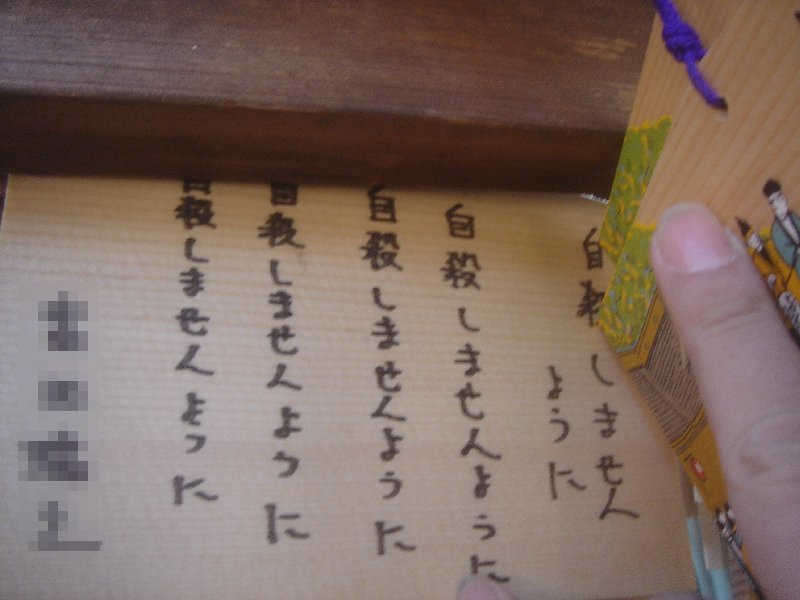 自殺しません
ように
自殺しませんように
自殺しませんように
自殺しませんように
自殺しませんように